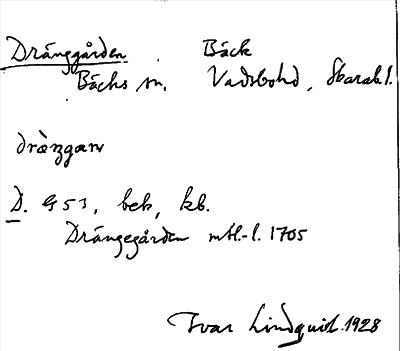 Dränggården Bäck
Bäcks sn. Vadsbo hd, Skarab. l.
dräŋgaɳ
D. G 53, bek, kb.
Drängegården mtl.-l. 1705
Ivar Lindquist. 1928